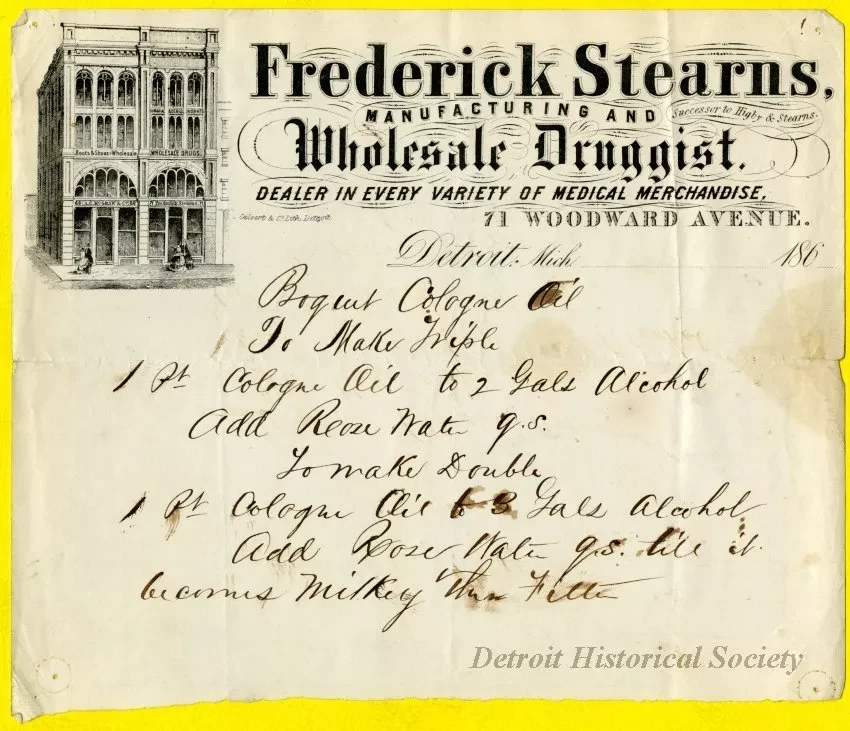 Frederick Stearns,
MANUFACTURING AND
Successor to Higby & Stearns.
Wholesale Druggist.
DEALER IN EVERY VARIETY OF MEDICAL MERCHANDISE,
71 WOODWARD AVENUE.
Boots & Shoes Wholesale WHOLESALE DRUGS.
FREDERICK STEARNS
Calvert & Co Lith. Detroit
Detroit, Mich. 186
Boquut Cologne Oil
To Make Triple
1 Pt Cologne Oil to 2 Gals Alcohol
Add Rose Water q.s.
To make Double
1 Pt Cologne Oil to 3 Gals Alcohol
Add Rose Water q.s. till it
becomes Milkey then Filter
Detroit Historical Society